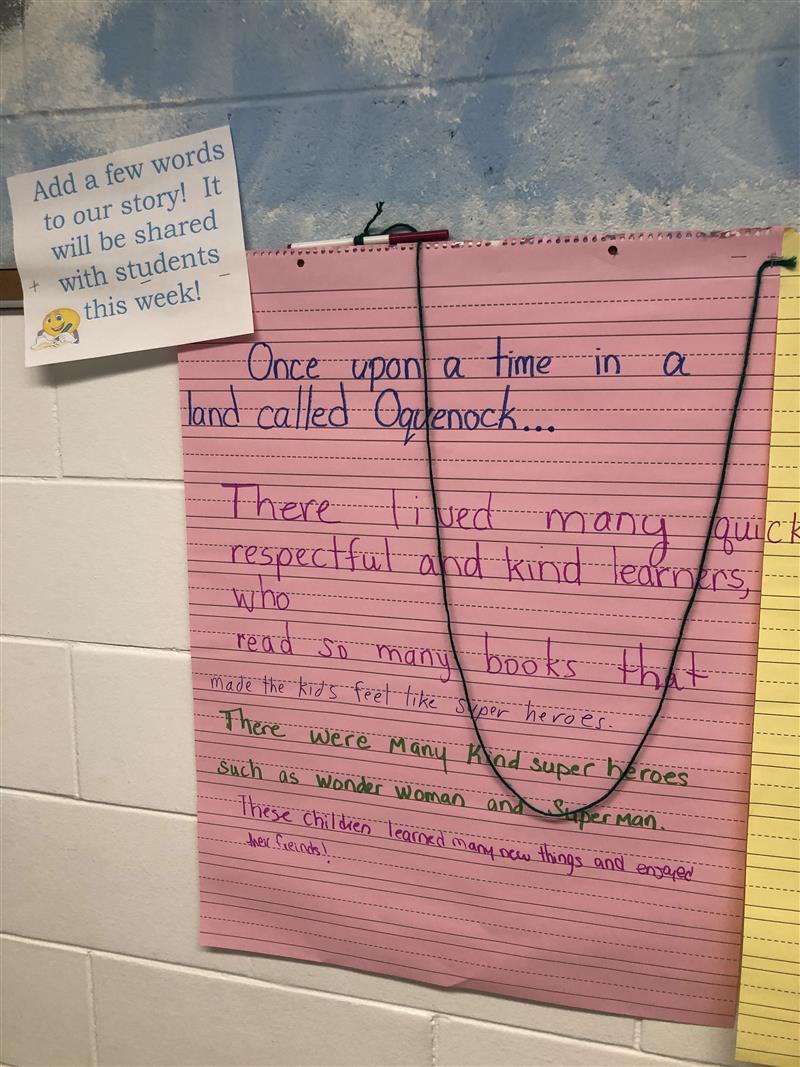 Add a few words
to our story! It
will be shared
with students
this week!
Once upon a time in a
land called Oquenock...
There lived many quick
respectful and kind learners,
who
read so many books that
made the kids feel like super heroes.
There were many kind super heroes
such as wonder woman and Superman.
These children learned many new things and enjoyed
their freinds!